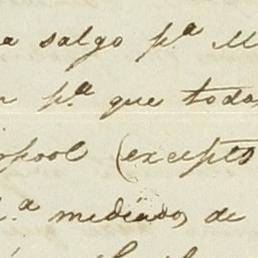 a salgo pª M
pª que toda
pool (excepto
ª mediados de